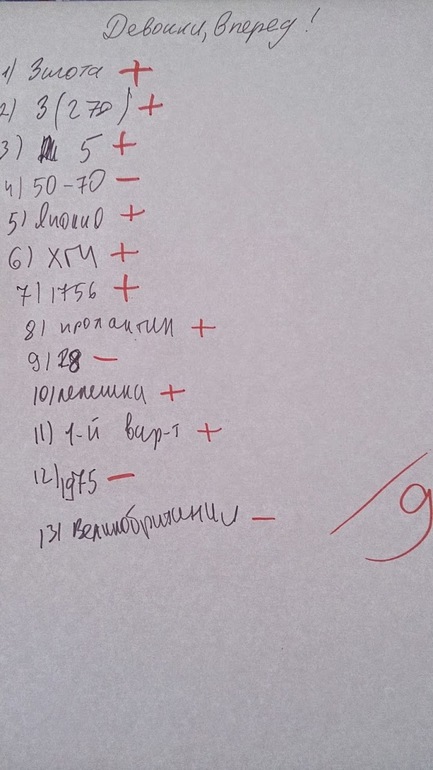 Девочки, вперед!
1) Золота +
2) 3 (270) +
3) 5 +
4) 50-70 −
5) +
6) ХГЧ +
7) 1756 +
8) пролактин +
9) 28 −
10) лепешка +
11) 1-й вар-т +
12) 1975 −
13) Великобритания −
9